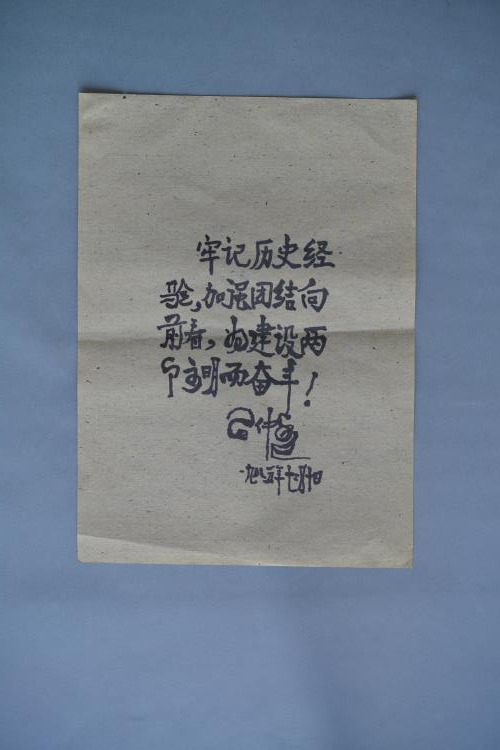 牢记历史经
验，加强团结向
前看，为建设两
个文明而奋斗！
一九八五年七月十日